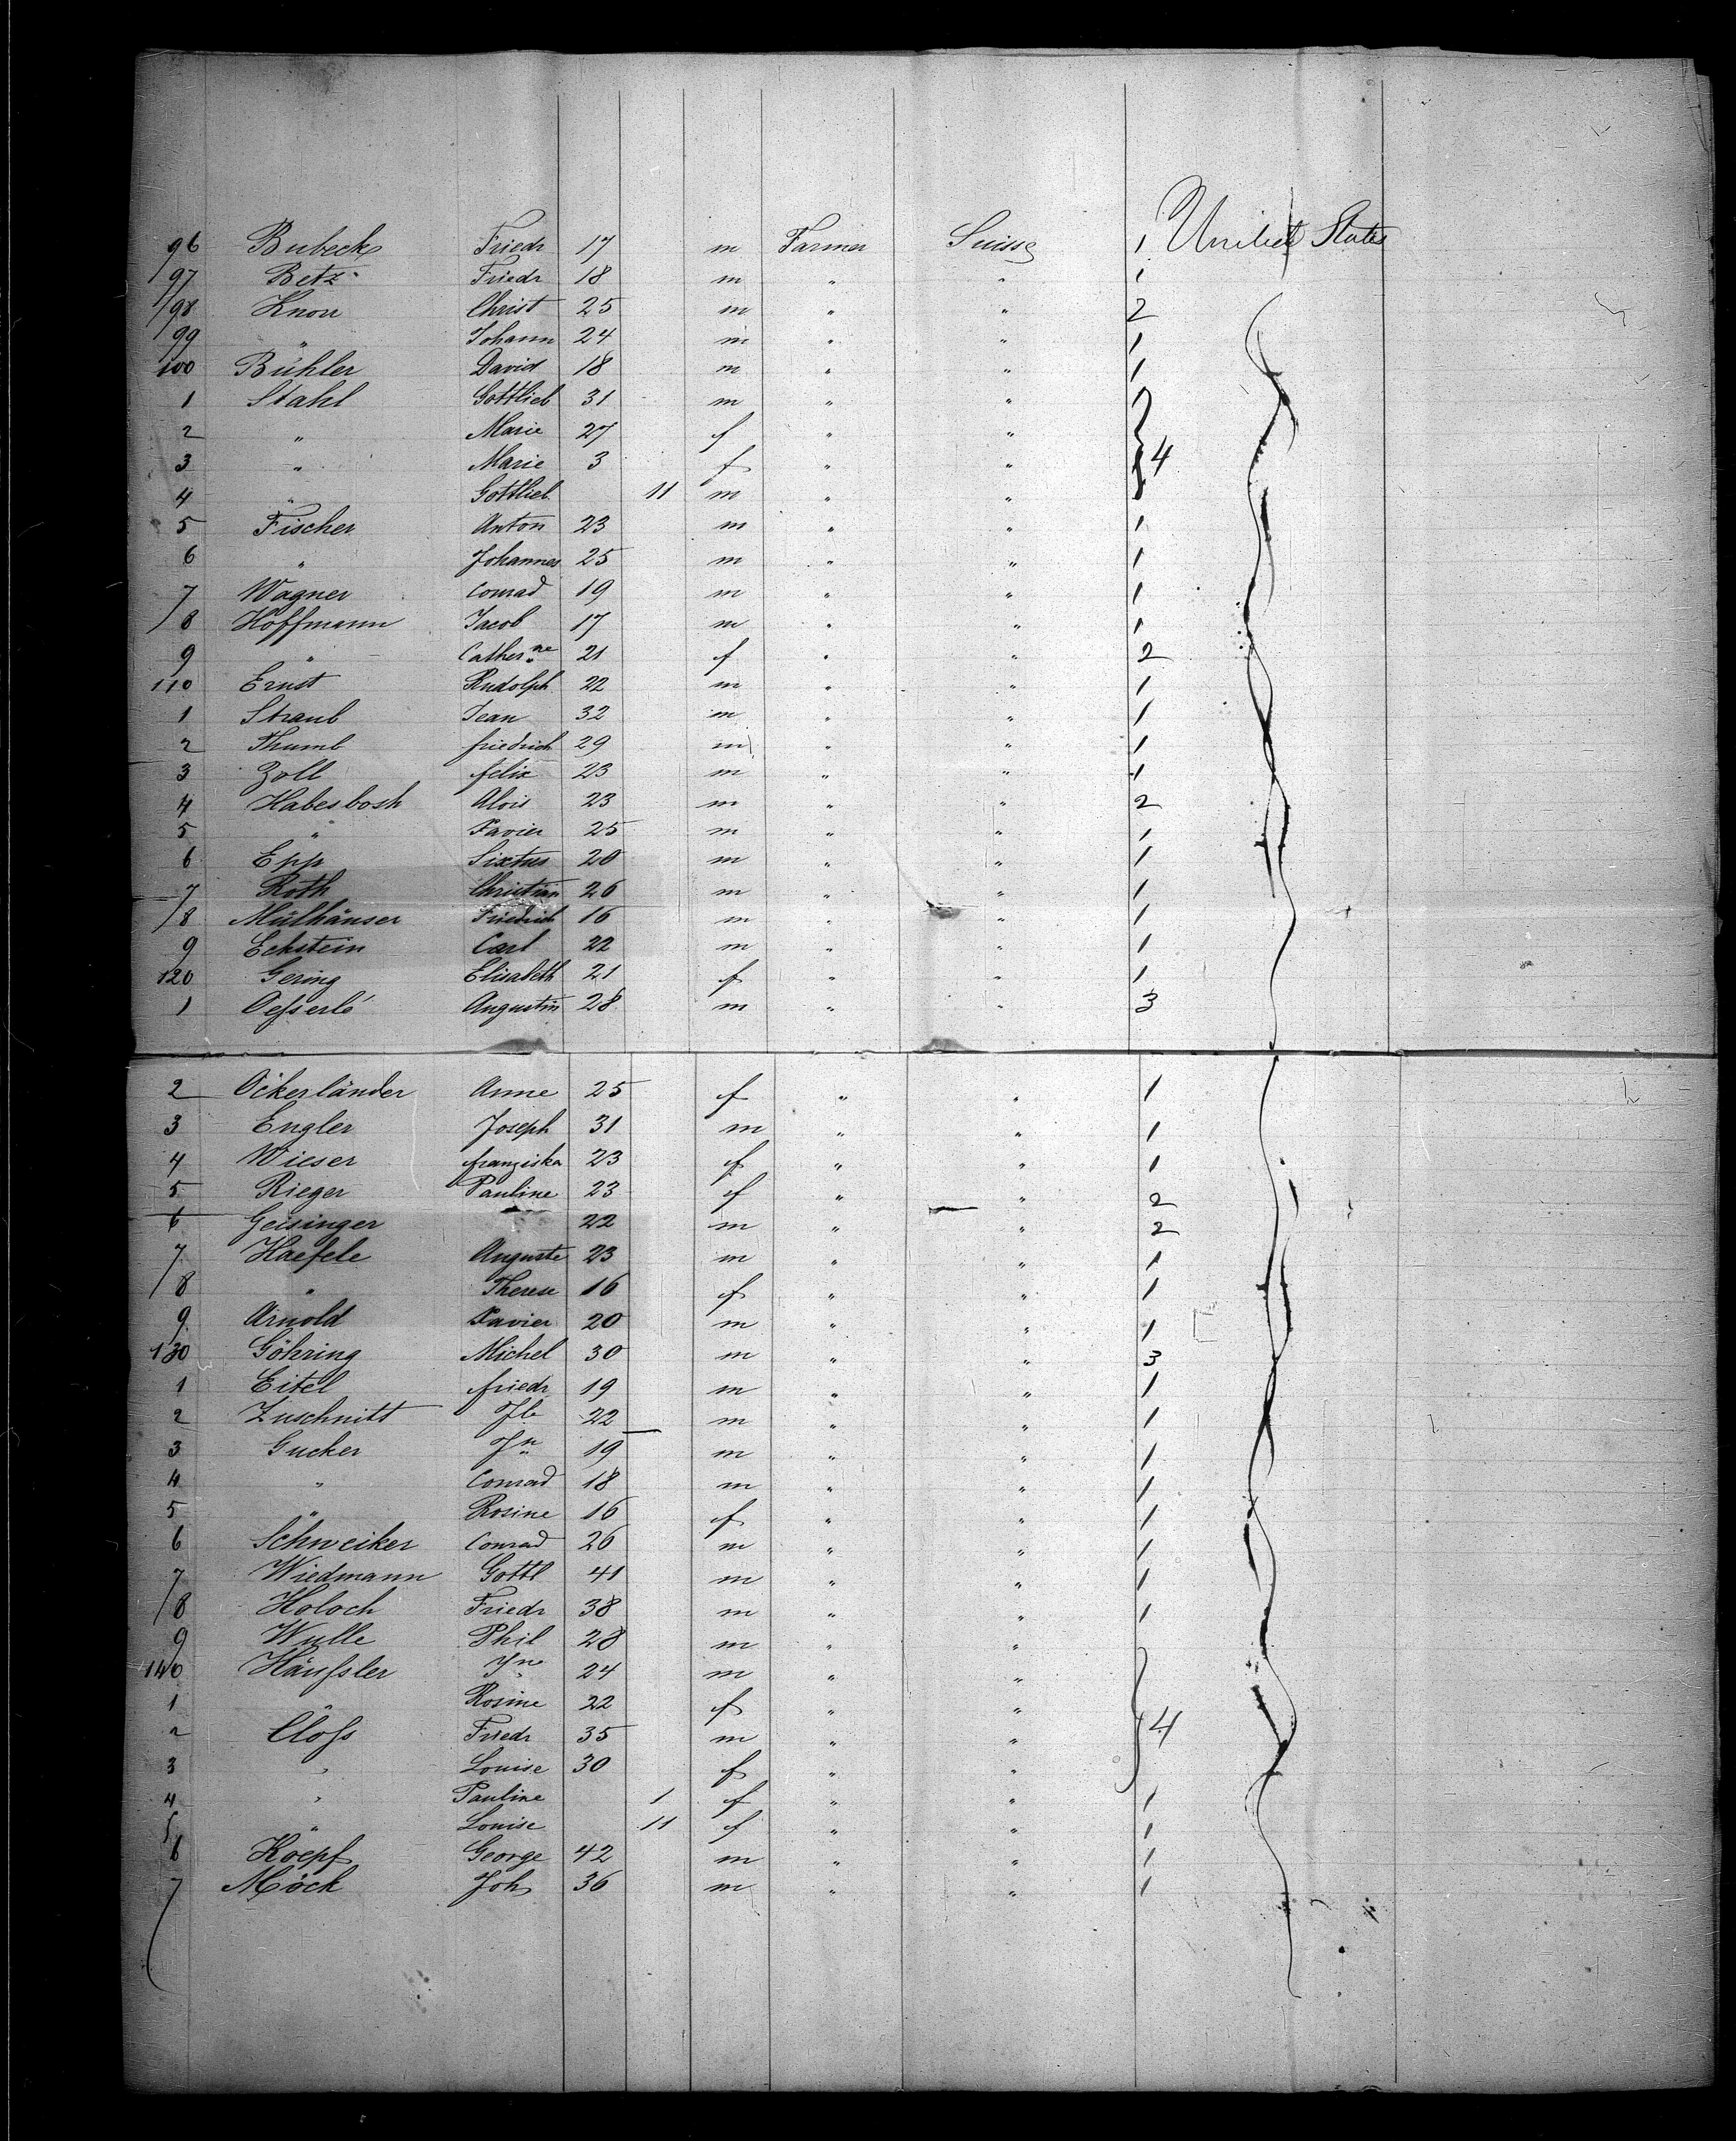 96 Bubeck Friedr 17 m Farmer Suisse 1 United States
97 Betz Friedr 18 m " " 1
98 Knorr Christ 25 m " " 2
99 " Johann 24 m " " 1
100 Bühler David 18 m " " 1
1 Stahl Gottlieb 31 m " "
2 " Marie 27 f " "
3 " Marie 3 f " " 4
4 " Gottlieb 11 m " "
5 Fischer Anton 23 m " " 1
6 " Johannes 25 m " " 1
7 Wagner Conrad 19 m " " 1
8 Hoffmann Jacob 17 m " " 1
9 " Catherne 21 f " " 2
110 Ernst Rudolph 22 m " " 1
1 Straub Jean 32 m " " 1
2 Thumb friedrich 29 m " " 1
3 Zoll felix 23 m " " 1
4 Habesbosh Alois 23 m " " 2
5 " Xavier 25 m " " 1
6 Epp Sixtus 20 m " " 1
7 Roth Christian 26 m " " 1
8 Mülhäuser Friedrich 16 m " " 1
9 Eckstein Carl 22 m " " 1
120 Gering Elisabeth 21 f " " 1
1 Oesserlé Augustin 28 m " " 3
2 Ockerländer Anne 25 f " " 1
3 Engler Joseph 31 m " " 1
4 Wieser franziska 23 f " " 1
5 Rieger Pauline 23 f " " 2
6 Geisinger 22 m " " 2
7 Haefele Auguste 23 m " " 1
8 " Therese 16 f " " 1
9 Arnold Xavier 20 m " " 1
130 Göhring Michel 30 m " " 3
1 Eitel friedr 19 m " " 1
2 Zuschnitt 22 m " " 1
3 Gucker Jn 19 m " " 1
4 " Conrad 18 m " " 1
5 " Rosine 16 f " " 1
6 Schweiker Conrad 26 m " " 1
7 Wiedmann Gottl 41 m " " 1
8 Holoch Friedr 38 m " " 1
9 Wulle Phil 28 m " "
140 Häussler Jne 24 m " "
1 " Rosine 22 f " "
2 Closs Friedr 35 m " " 4
3 " Louise 30 f " "
4 " Pauline 1 f " " 1
5 " Louise 11 f " " 1
6 Koepf George 42 m " " 1
7 Möck Joh 36 m " " 1